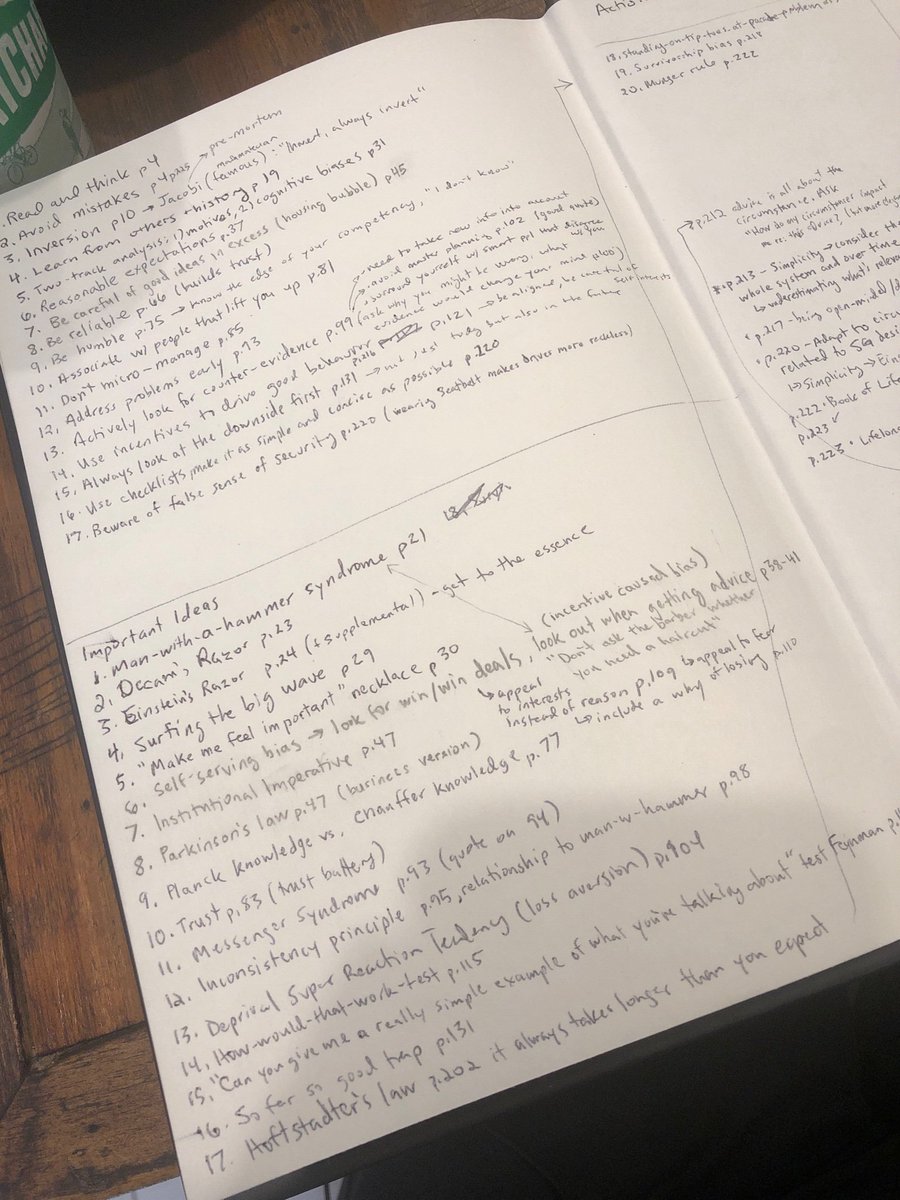 TCHA
.Read and think p.4
2. Avoid mistakes p4 p225
pre-mortem
3. Inversion p10 → Jacobi (famous mathematician): "Invert, always invert"
4. Learn from others + history p19
5. Two-track analysis: 1) motives, 2) cognitive biases p31
6. Reasonable expectations p.37
7. Be careful of good ideas in excess (housing bubble) p45
8. Be reliable p.66 (builds trust)
9. Be humble p.75 → know the edge of your competency, "I don't know"
10. Associate w/ people that lift you up p.81
11. Don't micro-manage p.85
12. Address problems early p.93
→ need to take new info into account
→ avoid master planning p.102 (good quote)
→ surround yourself w/ smart ppl that disagree w/ you
13. Actively look for counter-evidence p.99 (ask why you might be wrong, what evidence would change your mind p.100)
14. Use incentives to drive good behavior p.121 → be aligned, be careful of self interests
15. Always look at the downside first p.131 p.216 → not just today but also in the future
16. Use checklists, make it as simple and concise as possible p.220
17. Beware of false sense of security p.220 (wearing seatbelt makes driver more reckless)
Important Ideas
1. Man-with-a-hammer syndrome p21
2. Occam's Razor p.23
3. Einstein's Razor p.24 (+ supplemental) - get to the essence
4. Surfing the big wave p29
5. "Make me feel important" necklace p30
6. Self-serving bias → look for win/win deals, look out when getting advice p38-41
(incentive caused bias)
"Don't ask the barber whether you need a haircut"
↳ appeal to interests instead of reason p.109 ↳ appeal to fear
↳ include a why of losing p.110
7. Institutional Imperative p.47
8. Parkinson's law p.47 (business version)
9. Planck knowledge vs. chauffer knowledge p.77
10. Trust p.83 (trust battery)
11. Messenger Syndrome p.93 (quote on 94)
12. Inconsistency principle p.95, relationship to man-w-hammer p.98
13. Deprival Super Reaction Tendency (loss aversion) p.104
14. How-would-that-work-test p.115
15. "Can you give me a really simple example of what you're talking about" test Feynman p.11
16. So far so good trap p.131
17. Hoffstadter's law p.202 it always takes longer than you expect
Actio
18. standing-on-tip-toes-at-parade-problem
19. Survivorship bias p.218
20. Munger rule p.222
→ p.212 advice is all about the circumstance. Ask
"How do my circumstances impact me re: this advice?"
* p.213 - Simplicity → consider the
whole system and over time
↳ underestimating what's releva
• p.217 - being open-minded/
• p.220 - Adapt to circu
related to
↳ Simplicity → Eins
p.222. Book of Life
p.223
p.223 • Lifelon